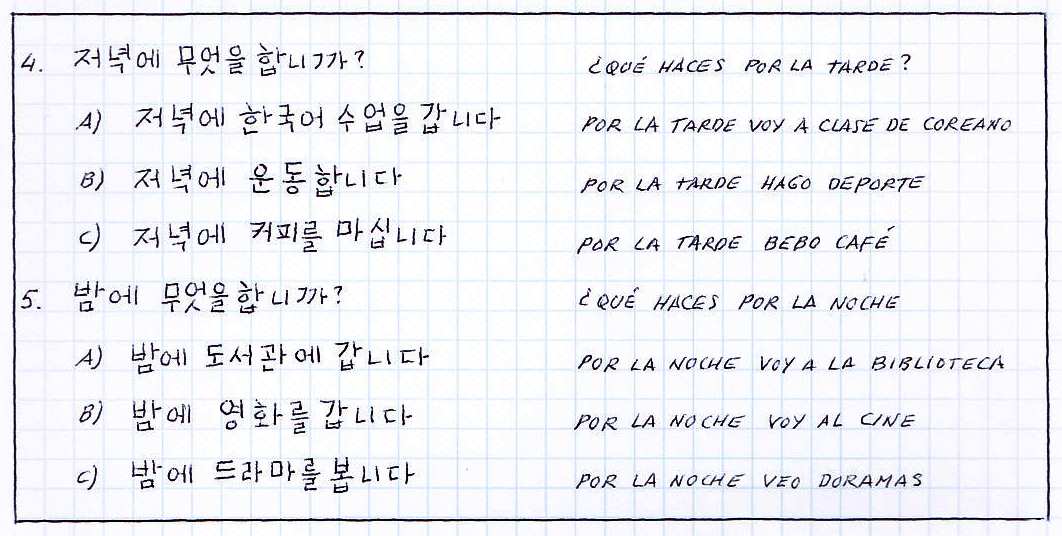 4. 저녁에 무엇을 합니까? ¿QUÉ HACES POR LA TARDE?
A) 저녁에 한국어 수업을 갑니다 POR LA TARDE VOY A CLASE DE COREANO
B) 저녁에 운동합니다 POR LA TARDE HAGO DEPORTE
C) 저녁에 커피를 마십니다 POR LA TARDE BEBO CAFÉ
5. 밤에 무엇을 합니까? ¿QUÉ HACES POR LA NOCHE
A) 밤에 도서관에 갑니다 POR LA NOCHE VOY A LA BIBLIOTECA
B) 밤에 영화를 갑니다 POR LA NOCHE VOY AL CINE
C) 밤에 드라마를 봅니다 POR LA NOCHE VEO DORAMAS